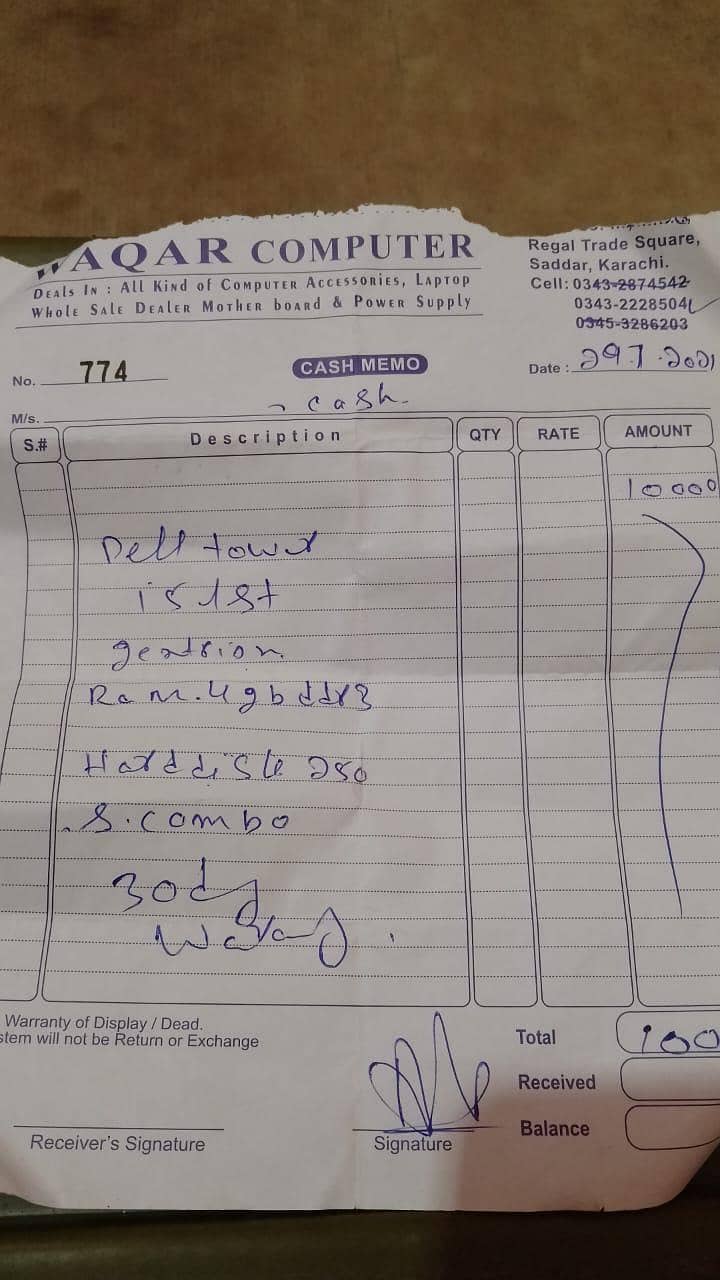 WAQAR COMPUTER
DEALS IN : ALL KIND OF COMPUTER ACCESSORIES, LAPTOP
WHOLE SALE DEALER MOTHER BOARD & POWER SUPPLY
Regal Trade Square,
Saddar, Karachi.
Cell: 0343-2874542
0343-2228504
0345-3286203
No. 774
CASH MEMO
Date : 29.7.2021
M/s. cash.
S.# Description QTY RATE AMOUNT
10000
Dell tower
is 1st
Ram.4gb ddr3
Harddisk 250
S.combo
30dy
Warranty of Display / Dead.
stem will not be Return or Exchange
Total 100
Received
Balance
Receiver's Signature
Signature